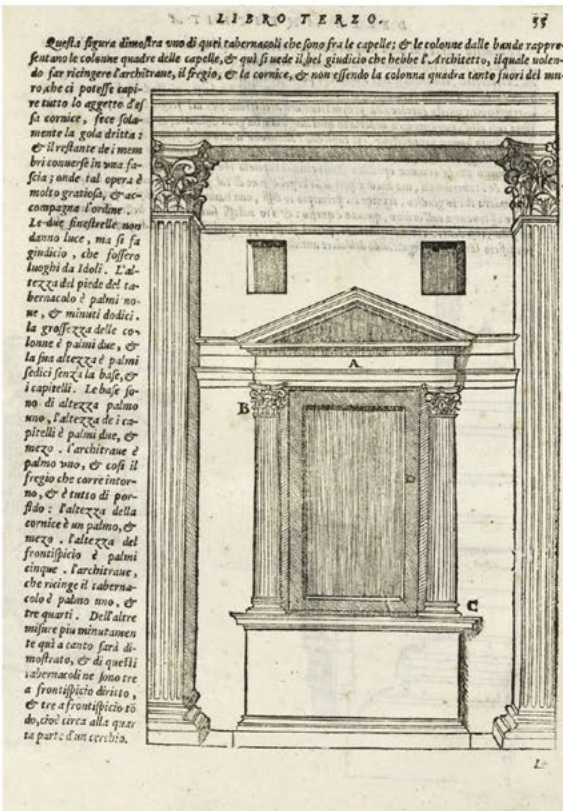 LIBRO TERZO. 55
Questa figura dimostra vno di quei tabernacoli che sono fra le capelle; & le colonne dalle bande rappre-
sentano le colonne quadre delle capelle, & qui si uede il bel giudicio che hebbe l'Architetto, ilquale uolen-
do far ricingere l'architraue, il fregio, & la cornice, & non essendo la colonna quadra tanto fuori del mu-
ro, che ci potesse capi
re tutto lo aggetto d'es
sa cornice, fece sola-
mente la gola dritta:
& il restante de i mem
bri conuerse in vna fa-
scia; onde tal opera è
molto gratiosa, & ac-
compagna l'ordine.
Le due finestrelle non
danno luce, ma si fa
giudicio, che fossero
luoghi da Idoli. L'al-
tezza del piede del ta-
bernacolo è palmi no-
ue, & minuti dodici.
la grossezza delle co-
lonne è palmi due, &
la sua altezza è palmi
sedici senza la base, &
i capitelli. Le base so-
no di altezza palmo
uno, l'altezza de i ca-
pitelli è palmi due, &
mezo. l'architraue è
palmo vno, & cosi il
fregio che corre intor-
no, & è tutto di por-
fido: l'altezza della
cornice è un palmo, &
mezo. l'altezza del
frontispicio è palmi
cinque. l'architraue,
che ricinge il taberna-
colo è palmo uno, &
tre quarti. Dell'altre
misure piu minutamen
te quì a canto sarà di-
mostrato, & di questi
tabernacoli ne sono tre
a frontispicio diritto,
& tre a frontispicio tō
do, cioè circa alla quar
ta parte d'un cerchio.
A
B
C